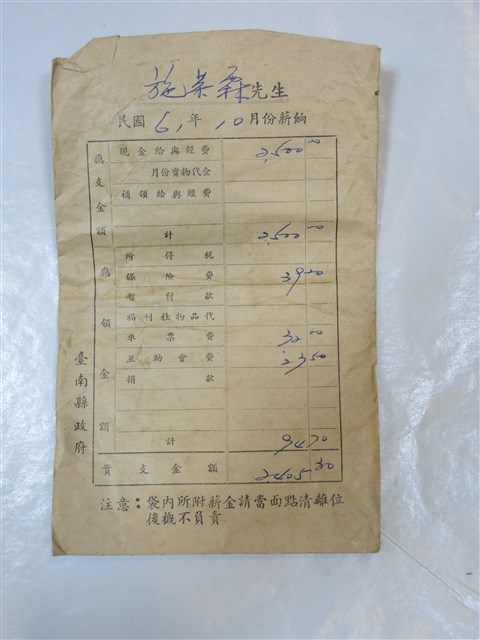 施荣霖先生
民國 61年 10月份薪餉
應支金額
現金給與經費 2,500 00
月份實物代金
補領給與經費
計 2,500 00
應領金額
所得稅
保險費 39 20
暫付款
福利社物品代
車票費 32 00
互助會費 23 50
捐款
計 94 70
實支金額 2405 30
臺南縣政府
注意：袋內所附薪金請當面點清離位
後概不負責